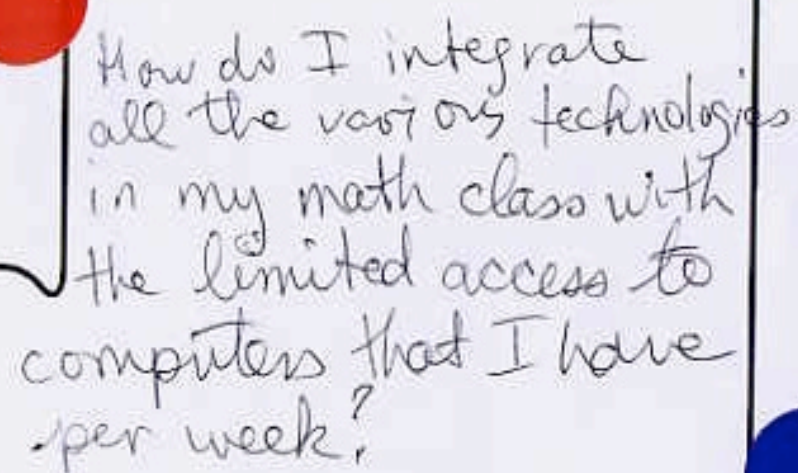 How do I integrate
all the various technologies
in my math class with
the limited access to
computers that I have
per week?